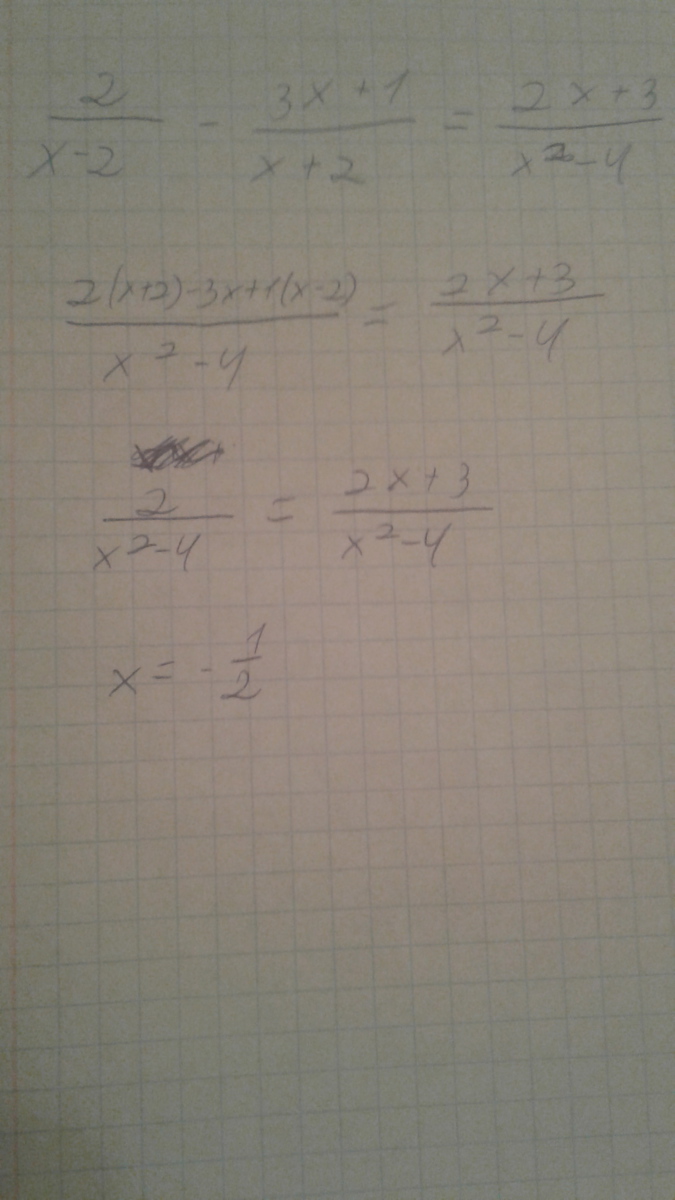 2/(x-2) - (3x+1)/(x+2) = (2x+3)/(x²-4)
(2(x+2)-3x+1(x-2))/(x²-4) = (2x+3)/(x²-4)
2/(x²-4) = (2x+3)/(x²-4)
x = -1/2